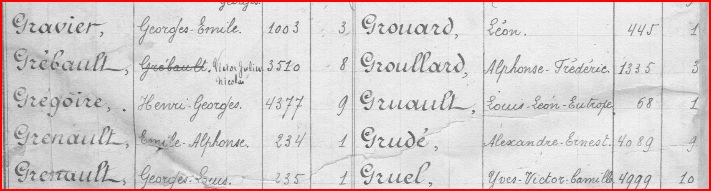 Georges.
Gravier, Georges-Emile. 1003 3 Grouard, Léon. 445 1
Grébault, Grébault. Victor Julien 3510 8 Groullard, Alphonse-Frédéric. 1335 3
Nicolas
Grégoire, Henri-Georges. 4377 9 Gruault, Louis-Léon-Eutrope 68 1
Grenault, Emile-Alphonse. 234 1 Grudé, Alexandre-Ernest. 4089 9
Grenault, Georges-Louis. 235 1 Gruel, Yves-Victor-Camille 4999 10